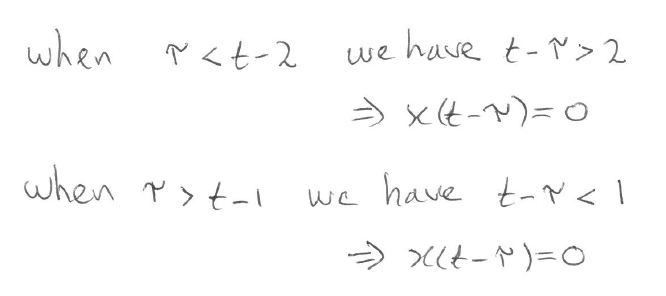 when τ < t-2 we have t-τ > 2
⇒ x(t-τ)=0
when τ > t-1 we have t-τ < 1
⇒ x(t-τ)=0